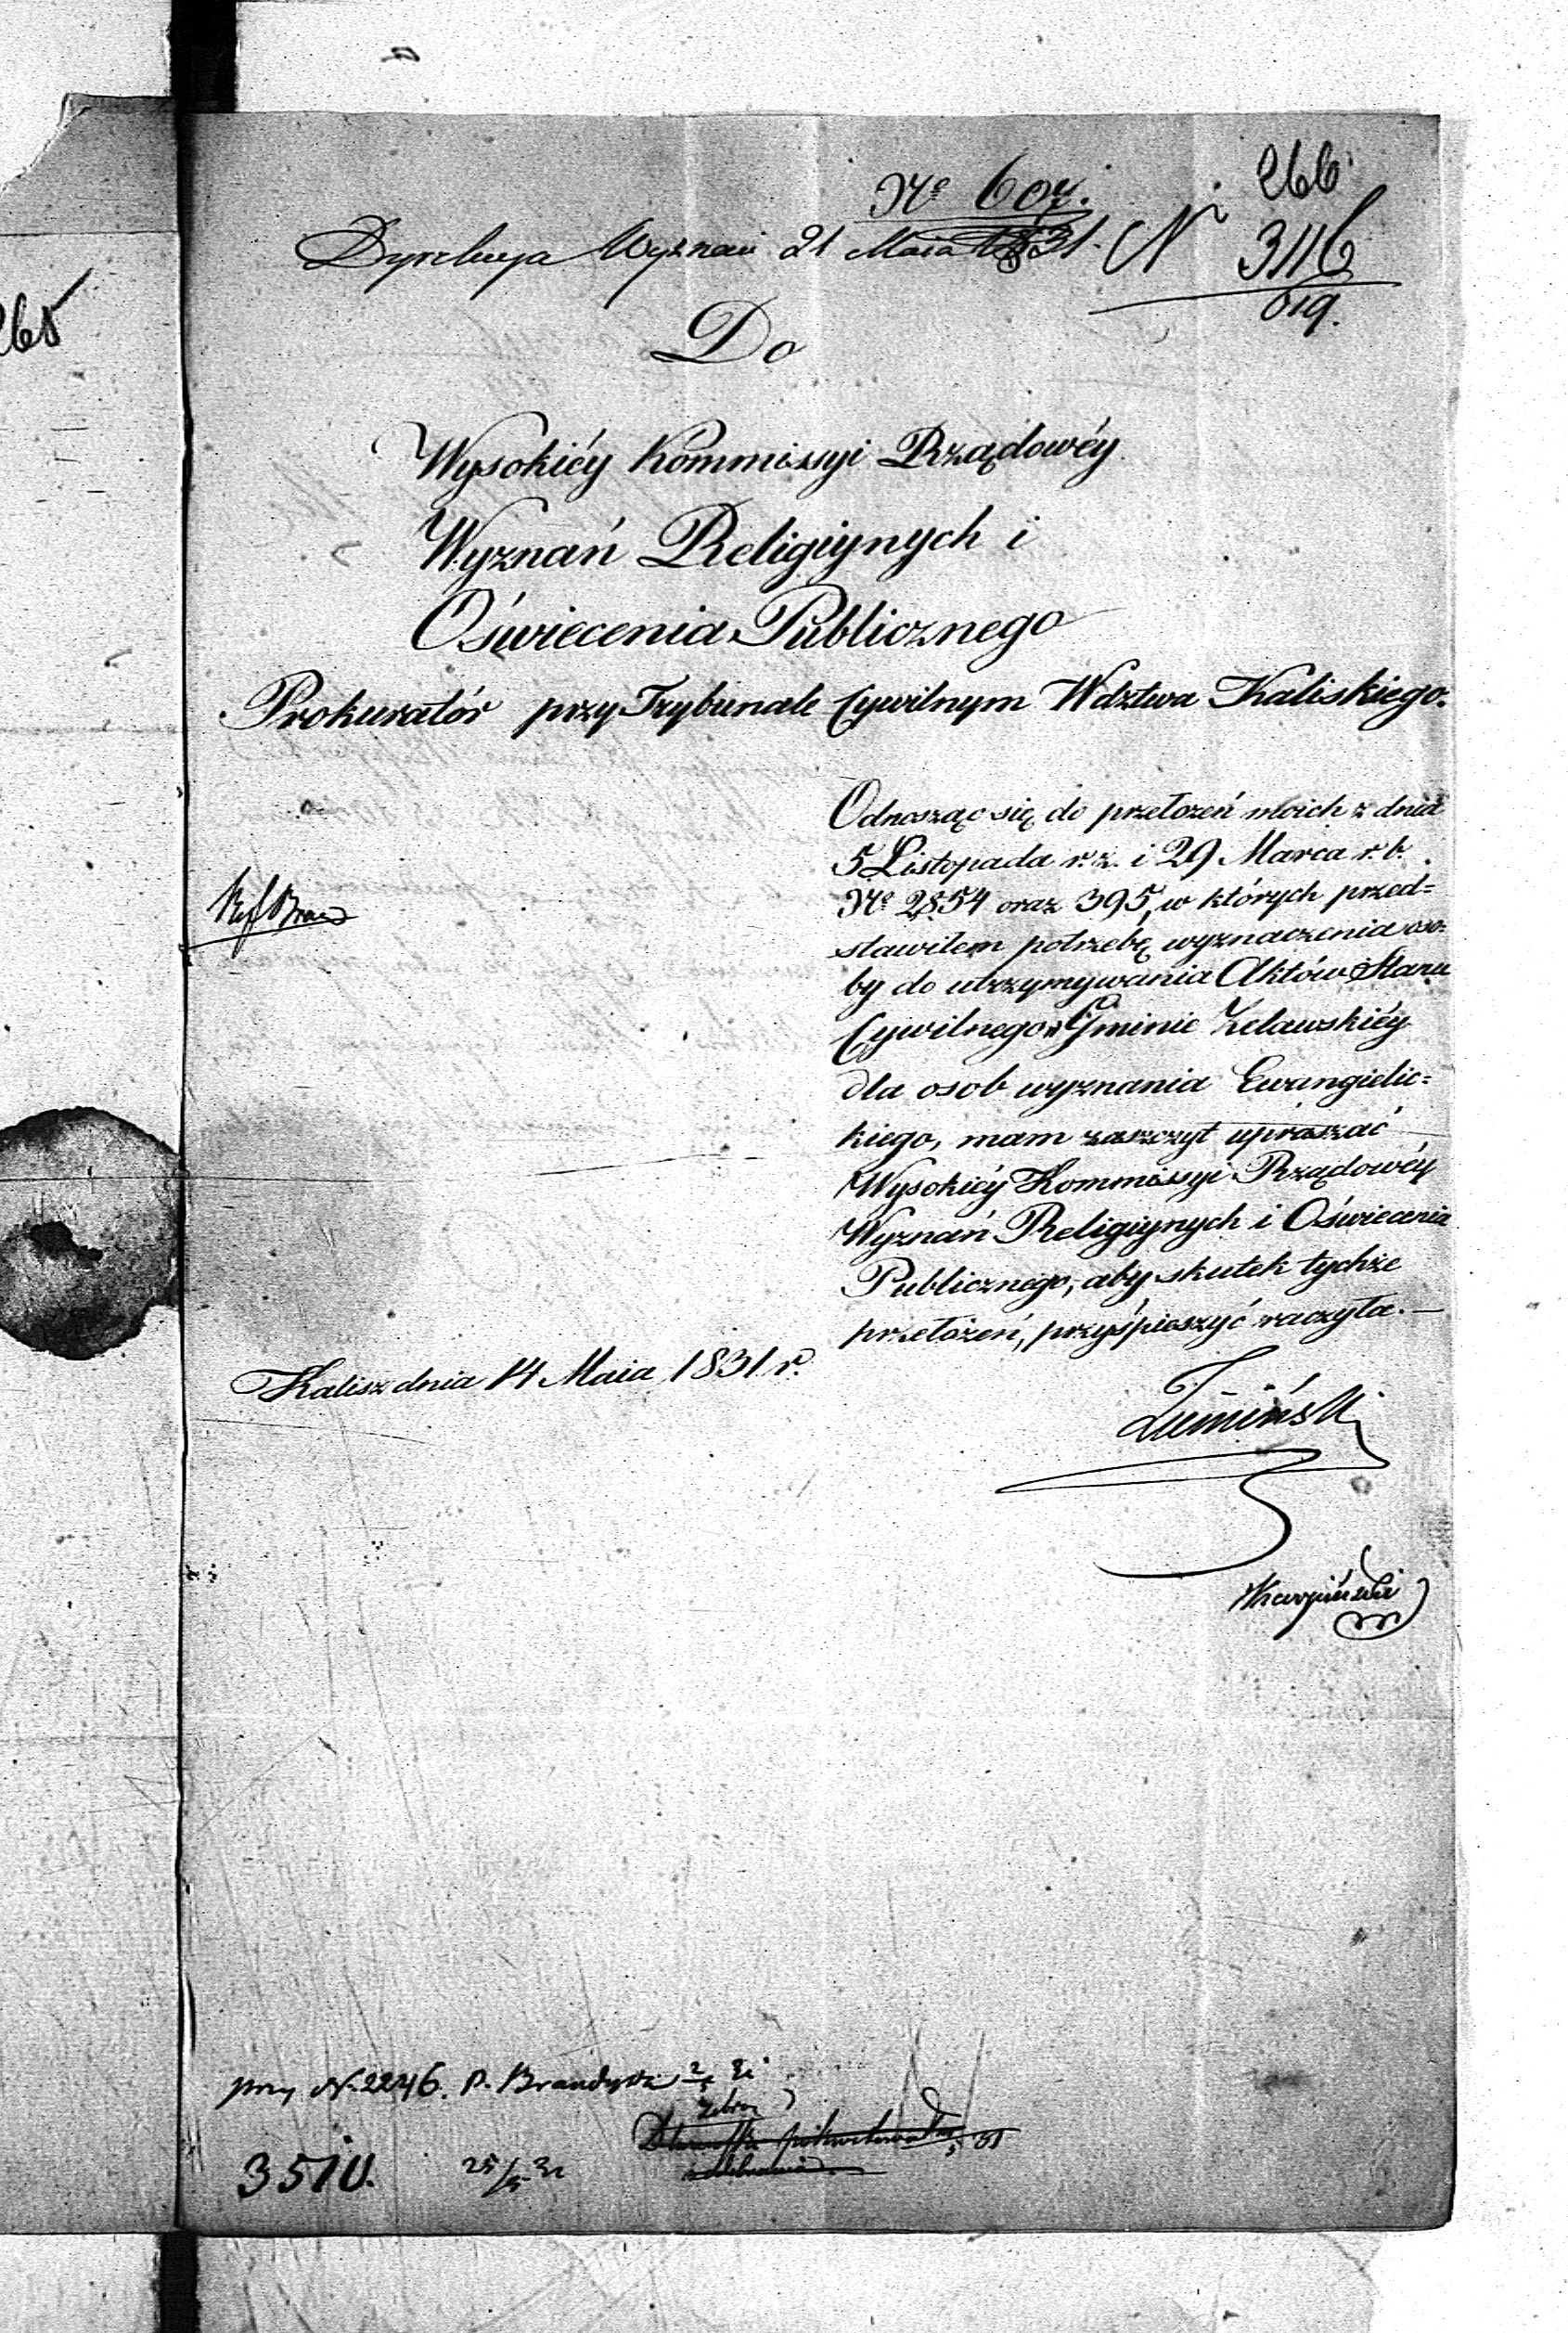 266
265
Nº 607.
Dyrekcya Wyznań 21 Maia 1831. N 3116
619.
Do
Wysokiéy Kommissyi Rządowéy
Wyznań Religiynych i
Oświecenia Publicznego
Prokuratór przy Trybunale Cywilnym Wdztwa Kaliskiego.
Odnosząc się do przełożeń moich z dnia
5 Listopada r. z. i 29 Marca r. b.
Nº 2854 oraz 395, w których przed=
stawiłem potrzebę wyznaczenia oso-
by do utrzymywania Aktów Stanu
Cywilnego w Gminie Zelawskiéy
dla osob wyznania Ewangielic=
kiego, mam zaszczyt upraszać
Wysokiéy Kommissyi Rządowéy
Wyznań Religiynych i Oświecenia
Publicznego, aby skutek tychże
przełożeń, przyśpieszyć raczyła.—
Kalisz dnia 14 Maia 1831 r.
Łumiński
Karpiński
przy N. 2246. P.
3510. 25/5 31